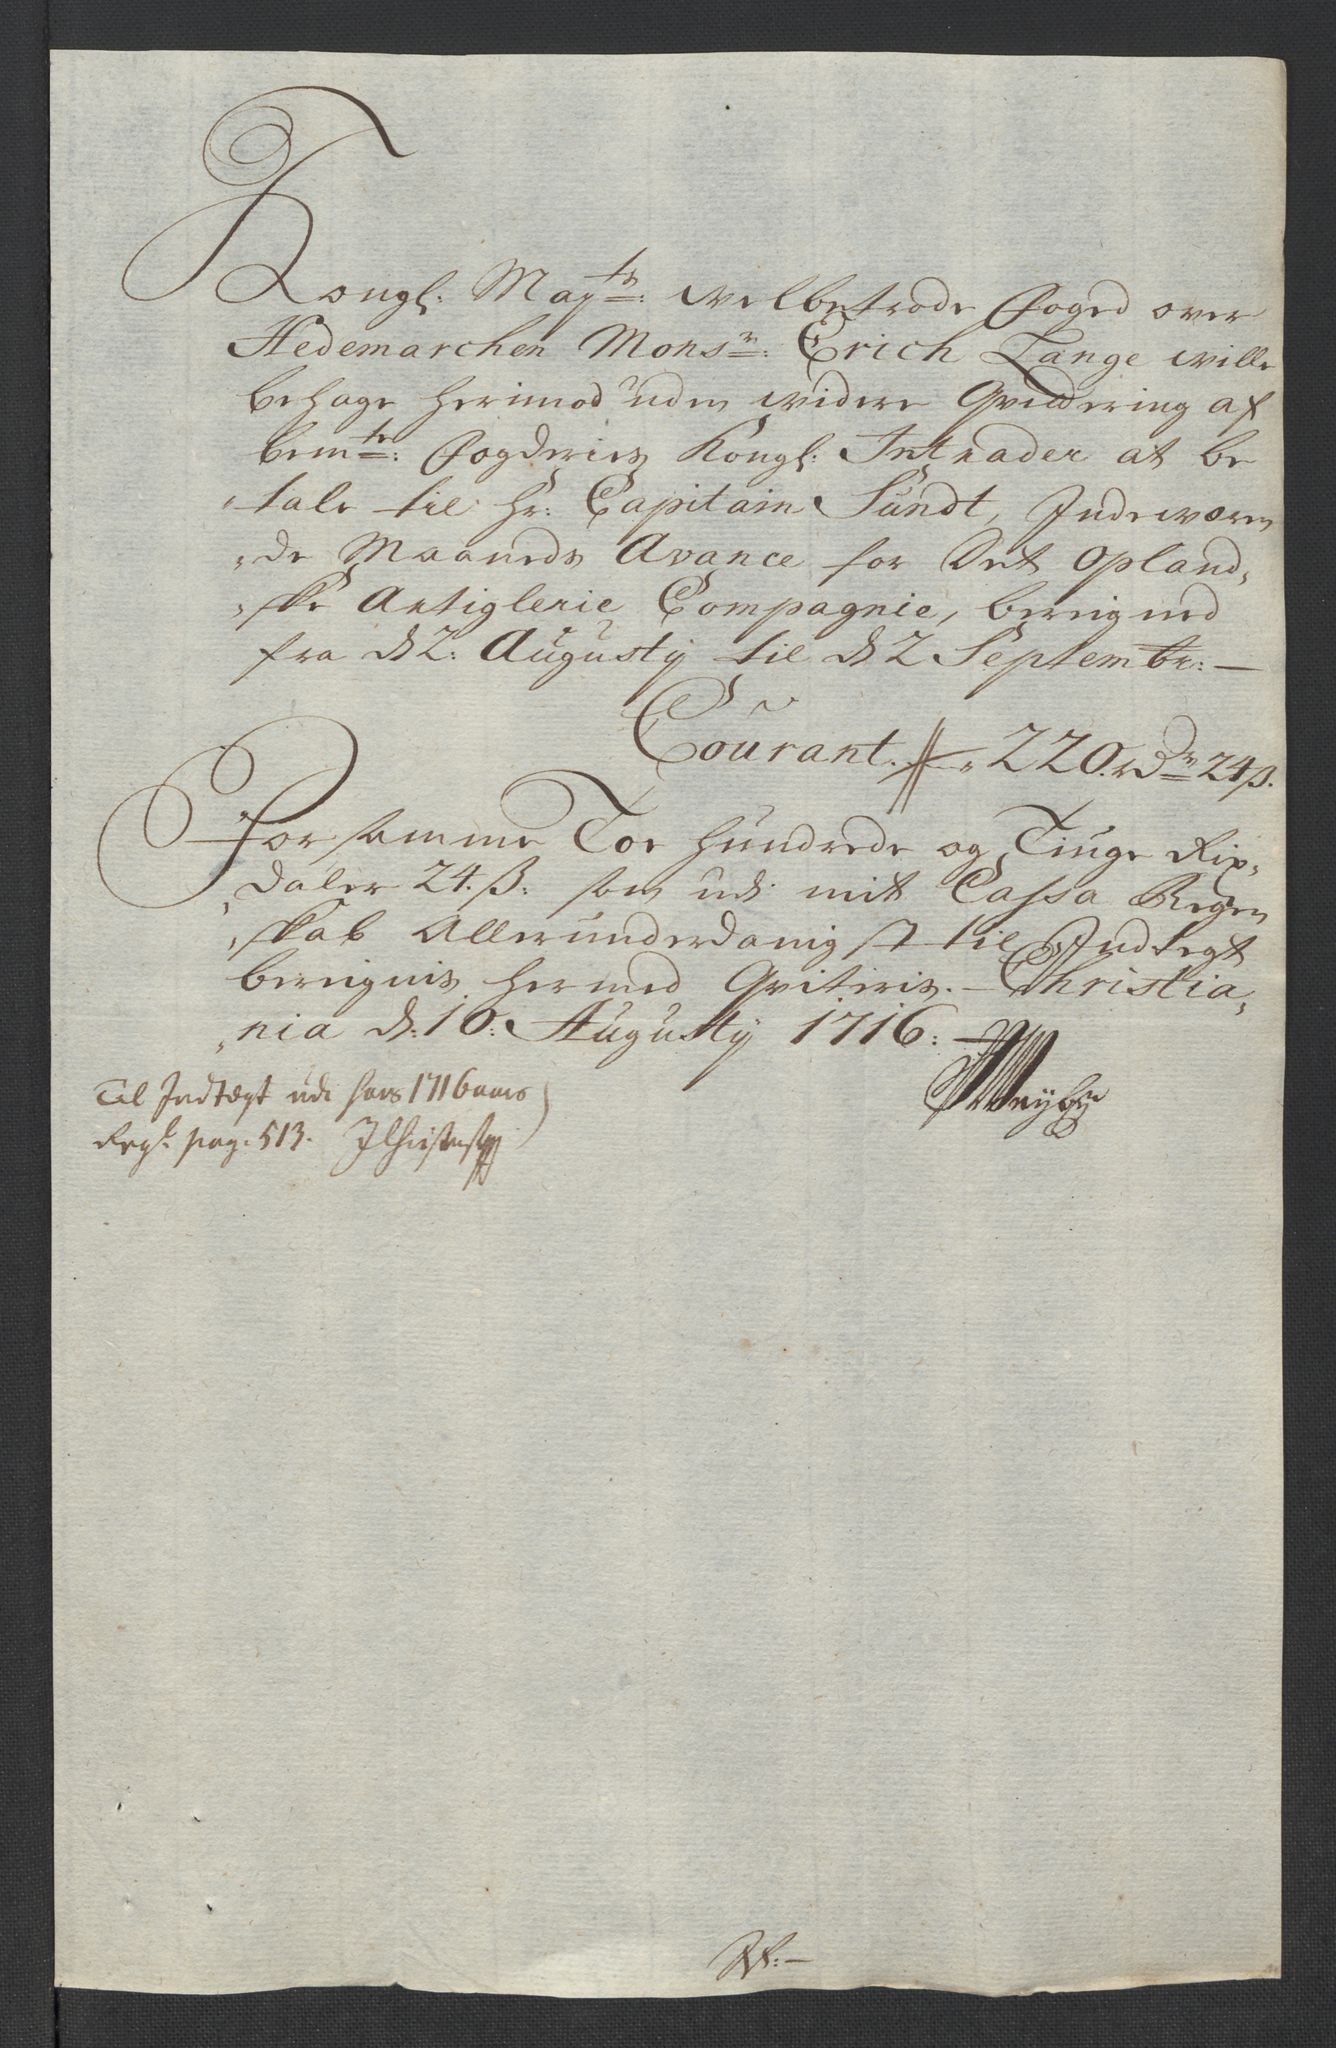 Kongl: May^ts: welbetrode Foged over
Hedemarchen Mons^r: Erich Lange wille
behage herimod uden widere Qvittering af
bem^te: Fogderies Kongl: Intrader at be
„tale til Hr: Capitain Sundt, Indeværen
„de Maaneds Avance for Det Opland„
„ske Artiglerie Compagnie, beregned
fra d 2: Augustij til d 2 Septembr: —
Courant. 220. rD^r 24 ß.
For samme Toe hundrede og Tiuge Rix„
„daler 24. ß: som udi mit Cassa Regen
„skab Allerunderdanigst til Indtegt
beregnis hermed Qviteris. — Christia„
„nia d: 16: Augustij 1716: —
Til Indtegt udi hans 1716 aars
Regs: pag: 513.